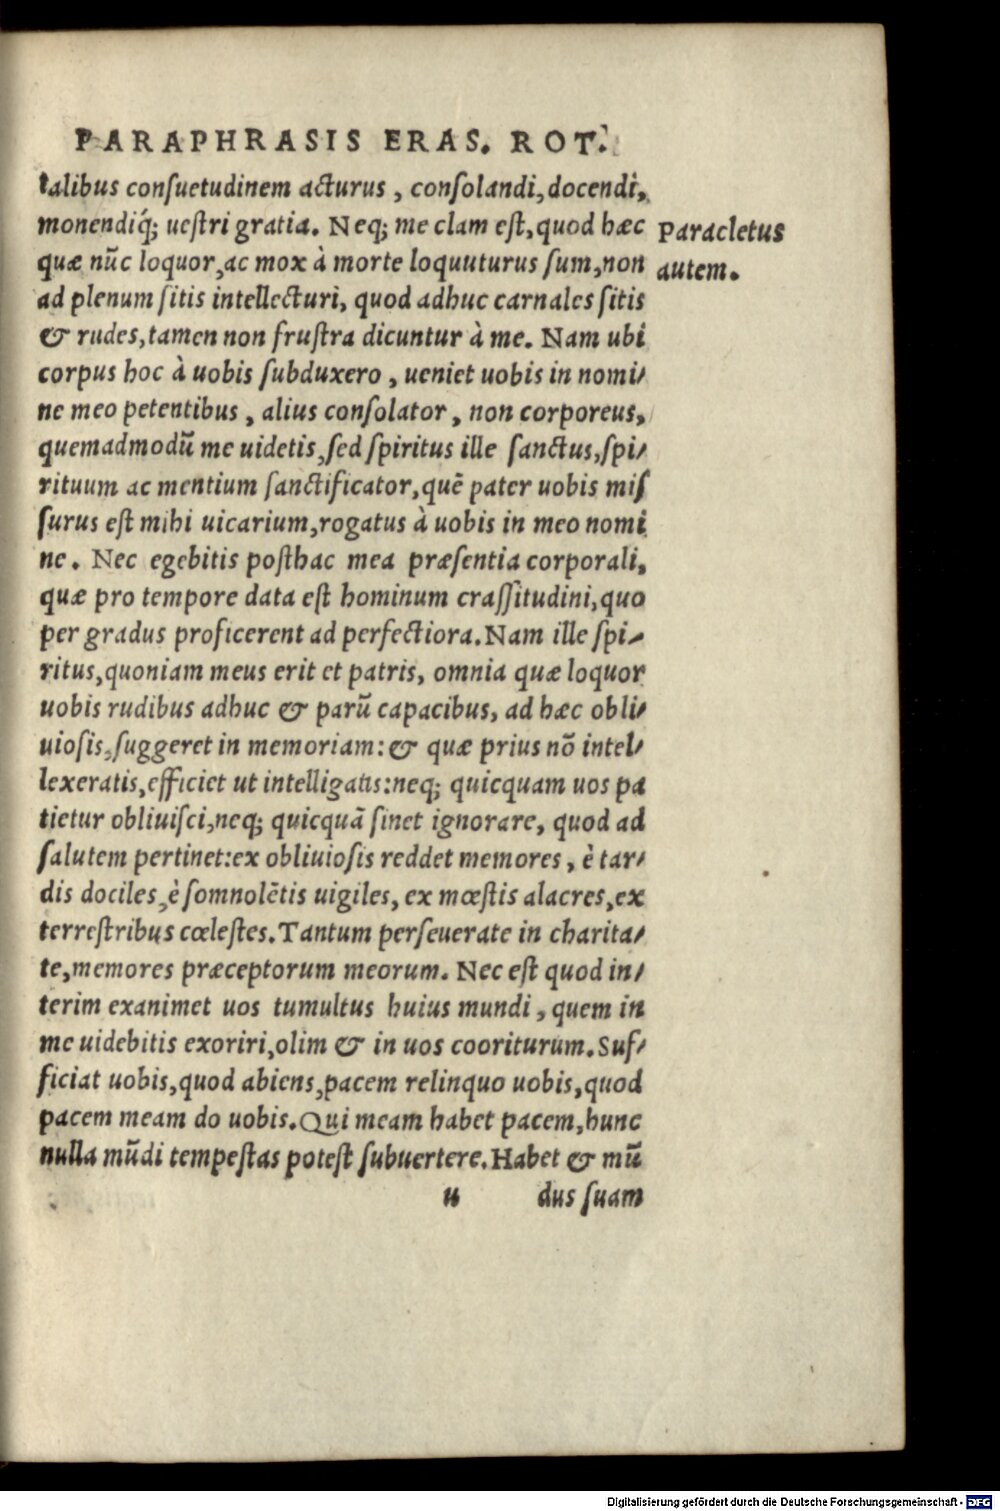 PARAPHRASIS ERAS. ROT.
talibus conſuetudinem acturus, conſolandi, docendi,
monendiq́; ueſtri gratia. Neq; me clam eſt, quod hæc
quæ nũc loquor, ac mox à morte loquuturus ſum, non
ad plenum ſitis intellecturi, quod adhuc carnales ſitis
& rudes, tamen non fruſtra dicuntur à me. Nam ubi
corpus hoc à uobis ſubduxero, ueniet uobis in nomi/
ne meo petentibus, alius conſolator, non corporeus,
quemadmodũ me uidetis, ſed ſpiritus ille ſanctus, ſpi/
rituum ac mentium ſanctificator, quẽ pater uobis miſ
ſurus eſt mihi uicarium, rogatus à uobis in meo nomi
ne. Nec egebitis poſthac mea præſentia corporali,
quæ pro tempore data eſt hominum craſſitudini, quo
per gradus proficerent ad perfectiora. Nam ille ſpi/
ritus, quoniam meus erit et patris, omnia quæ loquor
uobis rudibus adhuc & parũ capacibus, ad hæc obli/
uioſis, ſuggeret in memoriam: & quæ prius nõ intel/
lexeratis, efficiet ut intelligatis: neq; quicquam uos pa
tietur obliuiſci, neq; quicquã ſinet ignorare, quod ad
ſalutem pertinet: ex obliuioſis reddet memores, è tar/
dis dociles, è ſomnolẽtis uigiles, ex mœſtis alacres, ex
terreſtribus cœleſtes. Tantum perſeuerate in charita/
te, memores præceptorum meorum. Nec eſt quod in/
terim exanimet uos tumultus huius mundi, quem in
me uidebitis exoriri, olim & in uos cooriturum. Suf/
ficiat uobis, quod abiens, pacem relinquo uobis, quod
pacem meam do uobis. Qui meam habet pacem, hunc
nulla mũdi tempeſtas poteſt ſubuertere. Habet & mũ
u dus ſuam
Paracletus
autem.
Digitalisierung gefördert durch die Deutsche Forschungsgemeinschaft - DFG